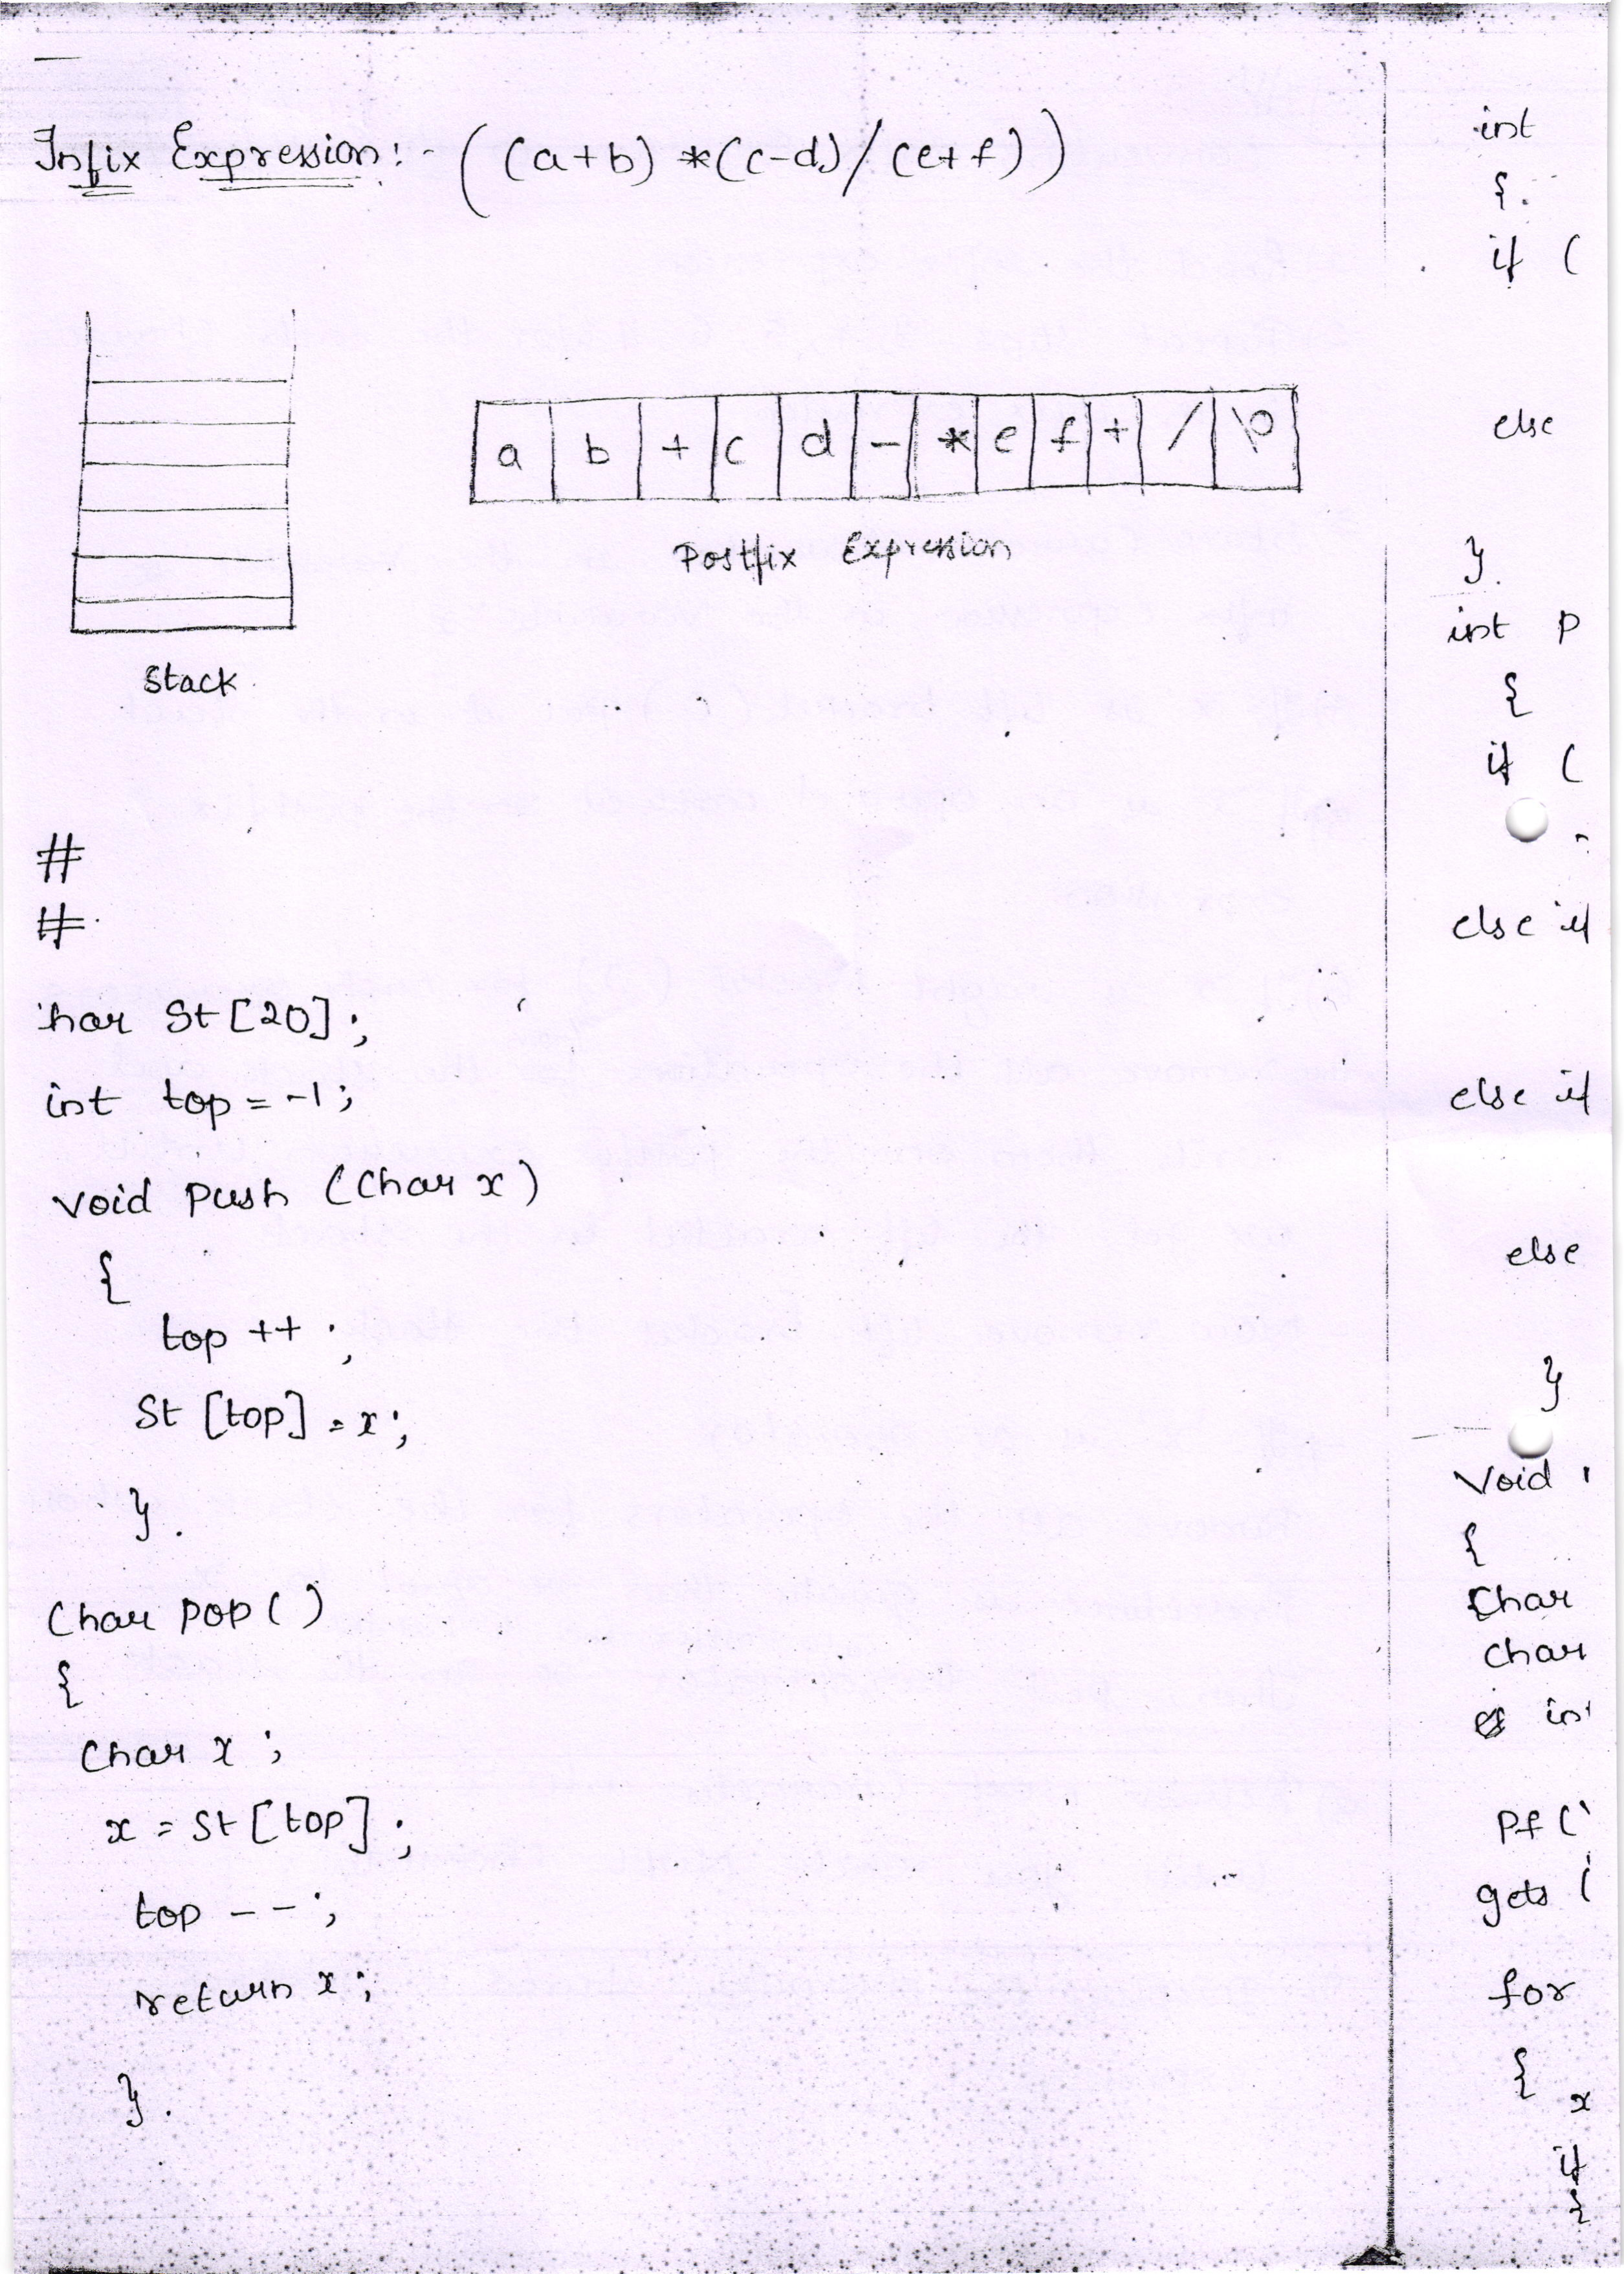 Infix Expression:- ((a+b) *(c-d)/(e+f))
a b + c d - * e f + / \0
Postfix Expression
Stack
#
#
har St[20];
int top = -1;
void push (Char x)
{
top ++ ;
St [top] = x;
}.
Char pop ( )
{
Char x ;
x = St [top] ;
top -- ;
return x ;
}.
int
{.
if (
else
}.
int P
{
if (
else if
else if
else
}
Void
{
Char
Char
int
Pf ("
gets (
for
{
x
if
{